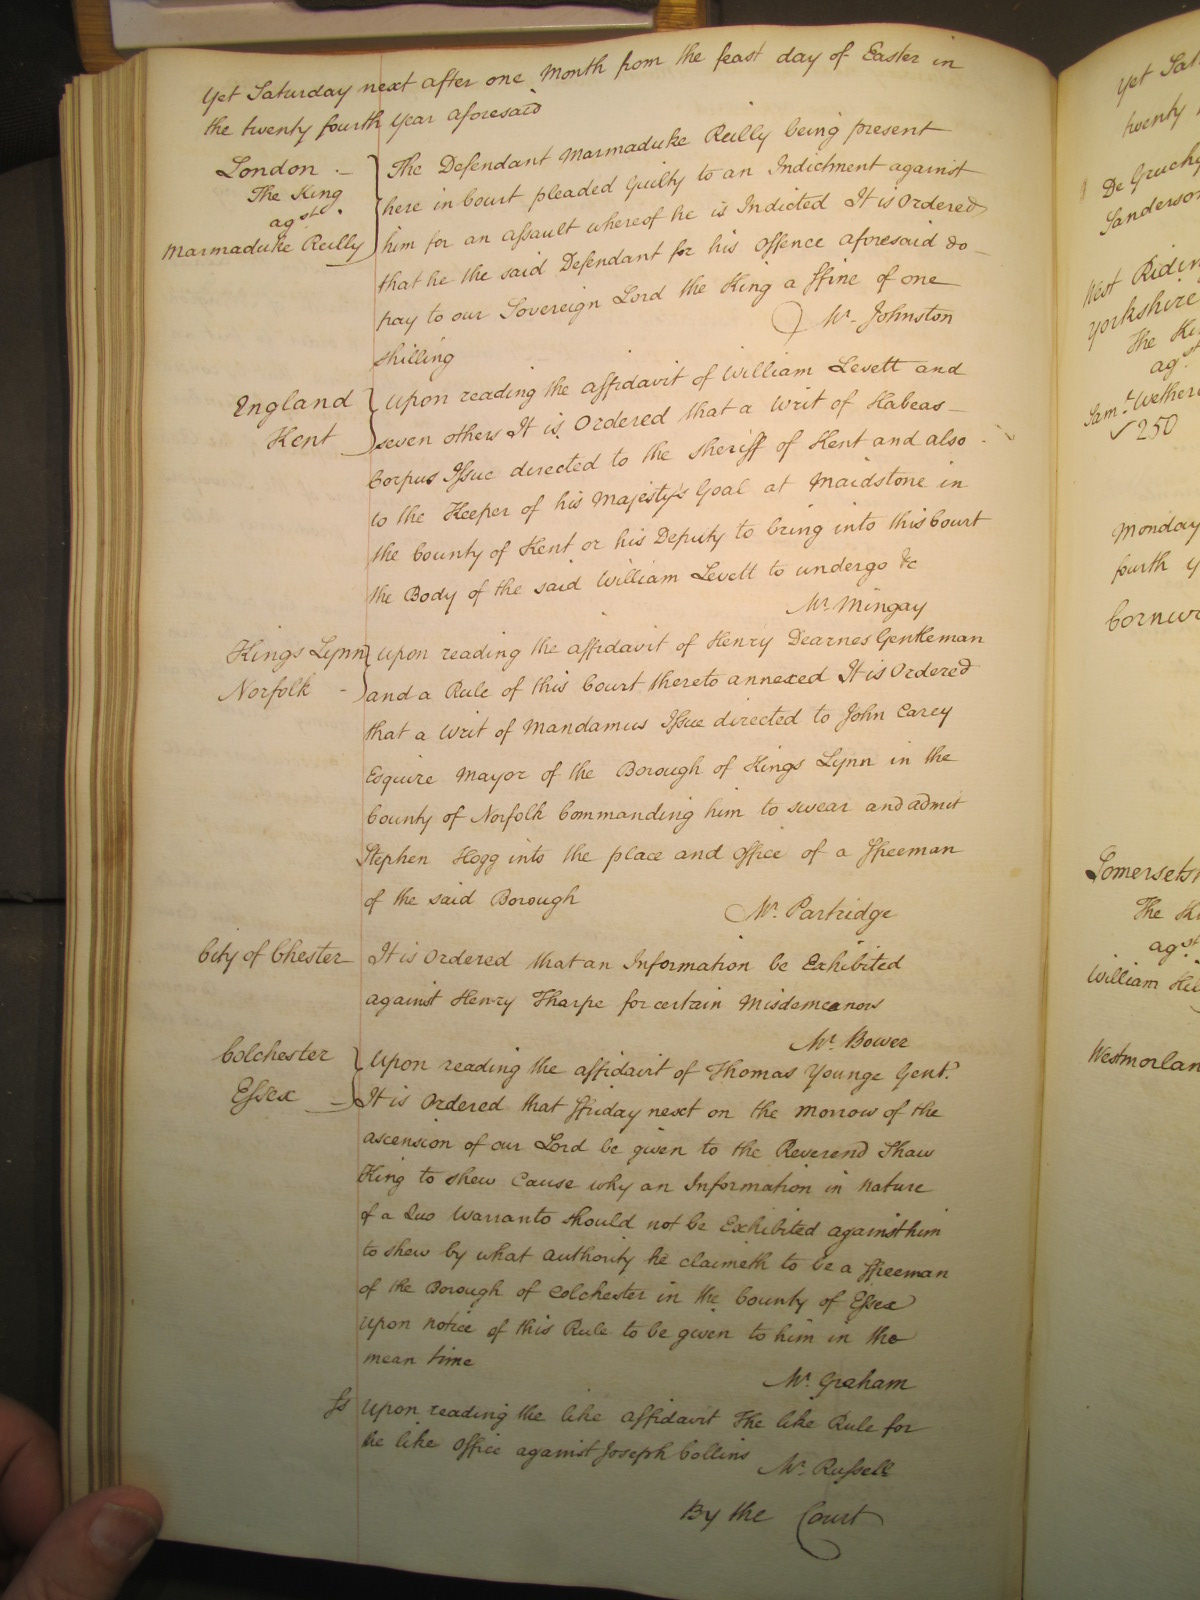 Yet Saturday next after one Month from the feast day of Easter in
the twenty fourth Year aforesaid
London
The King
agst
Marmaduke Reilly
The Defendant Marmaduke Reilly being present
here in Court pleaded Guilty to an Indictment against
him for an assault whereof he is Indicted It is Ordered
that he the said Defendant for his Offence aforesaid do
pay to our Sovereign Lord the King a ffine of one
shilling
Mr. Johnston
England
Kent
Upon reading the affidavit of William Levett and
seven others It is Ordered that a Writ of Habeas
Corpus Issue directed to the Sheriff of Kent and also
to the Keeper of his Majesty's Goal at Maidstone in
the County of Kent or his Deputy to bring into this Court
the Body of the said William Levett to undergo &c
Mr. Mingay
Kings Lynn
Norfolk
Upon reading the affidavit of Henry Dearnes Gentleman
and a Rule of this Court thereto annexed It is Ordered
that a Writ of Mandamus Issue directed to John Carey
Esquire Mayor of the Borough of Kings Lynn in the
County of Norfolk Commanding him to swear and admit
Stephen Hogg into the place and Office of a ffreeman
of the said Borough
Mr. Partridge
City of Chester
It is Ordered that an Information be Exhibited
against Henry Tharpe for certain Misdemeanors
Mr. Bower
Colchester
Essex
Upon reading the affidavit of Thomas Younge Gent.
It is Ordered that ffriday next on the Morrow of the
ascension of our Lord be given to the Reverend Thaw
King to shew Cause why an Information in Nature
of a Quo Warranto should not be Exhibited against him
to shew by what authority he claimeth to be a ffreeman
of the Borough of Colchester in the County of Essex
upon notice of this Rule to be given to him in the
mean time
Mr. Graham
Is
Upon reading the like affidavit The like Rule for
he like Office against Joseph Collins
Mr. Russell
By the Court
Yet Sat
twenty
De Gruchy
Sanderson
West Ridin
Yorkshire
The Ki
agst
Samt. Wether
250
Monday
fourth y
Cornw
Somersets
The Ki
agst
William
Westmorlan